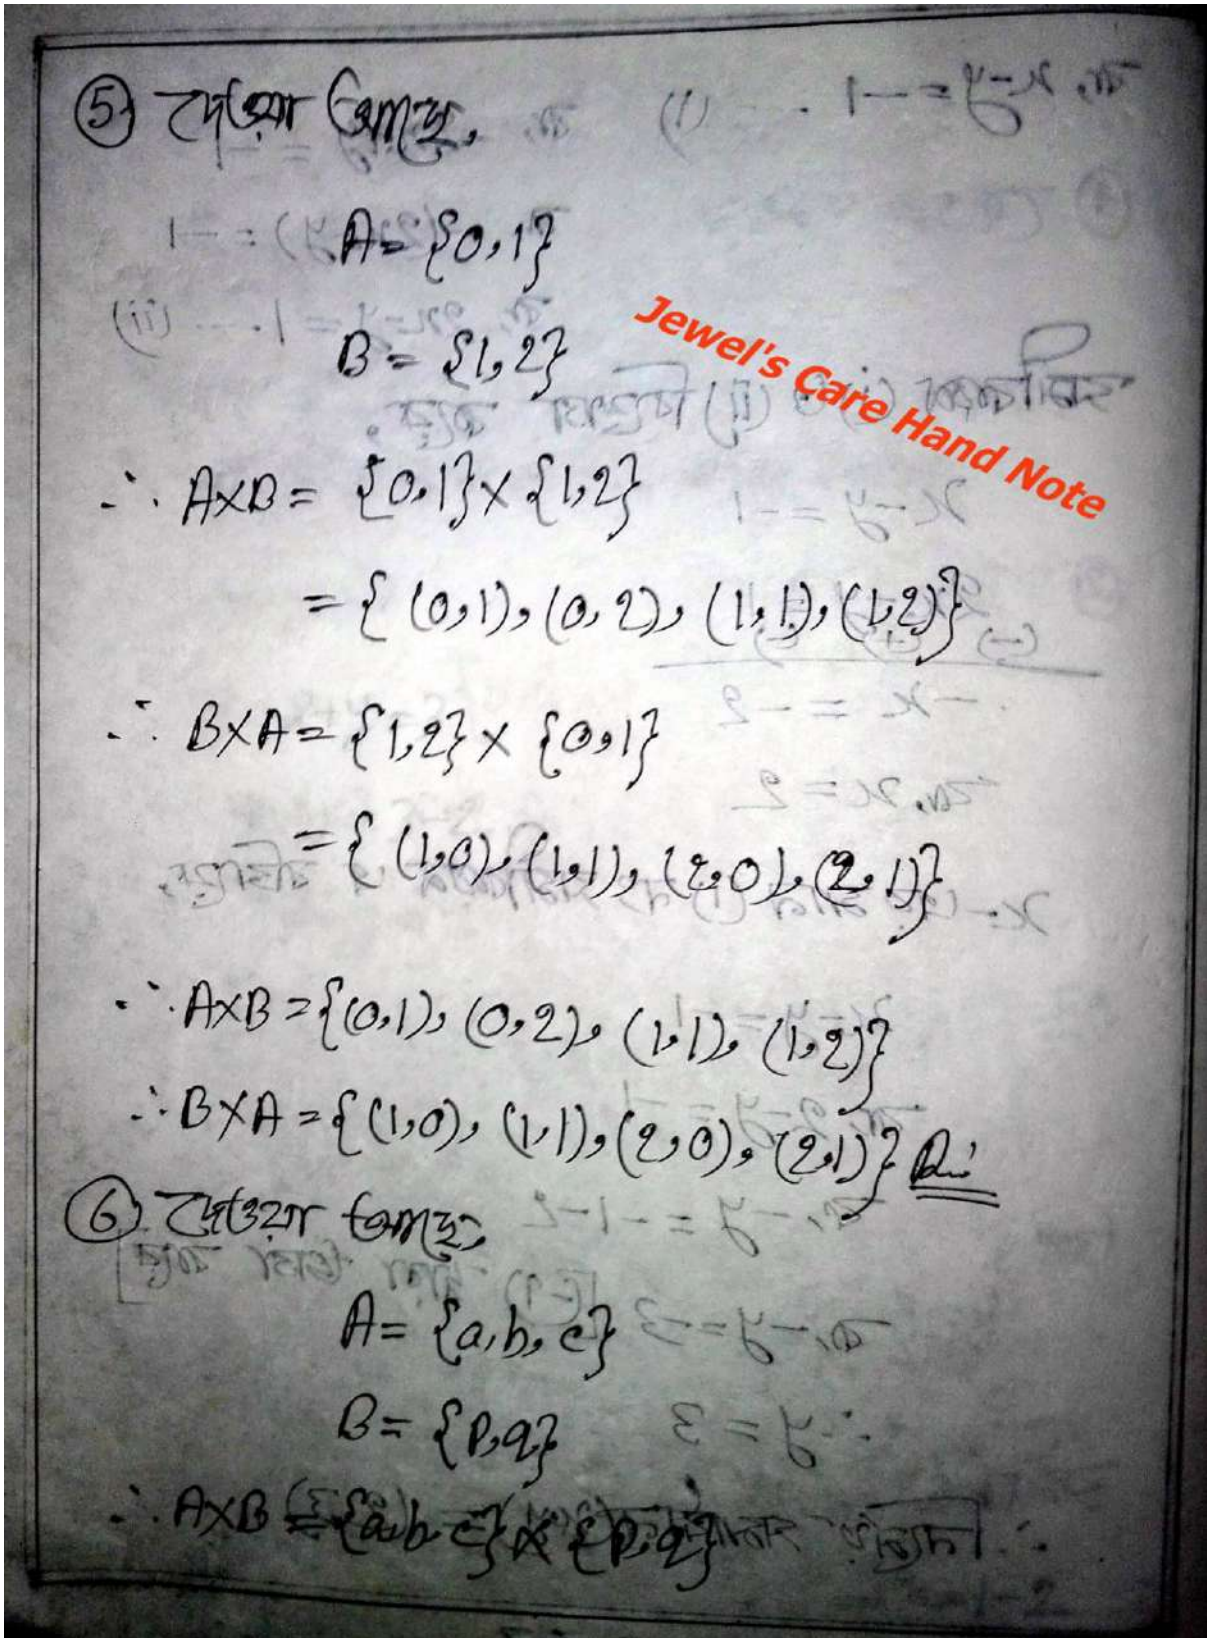 ⑤ দেওয়া আছে,
A = {0, 1}
B = {1, 2}
Jewel's Care Hand Note
∴ A×B = {0,1} × {1,2}
= { (0,1), (0,2), (1,1), (1,2)}
∴ B×A = {1,2} × {0,1}
= { (1,0), (1,1), (2,0), (2,1)}
∴ A×B = {(0,1), (0,2), (1,1), (1,2)}
∴ B×A = {(1,0), (1,1), (2,0), (2,1)}
⑥ দেওয়া আছে,
A = {a, b, c}
B = {p, q}
∴ A×B = {a, b, c} × {p, q}